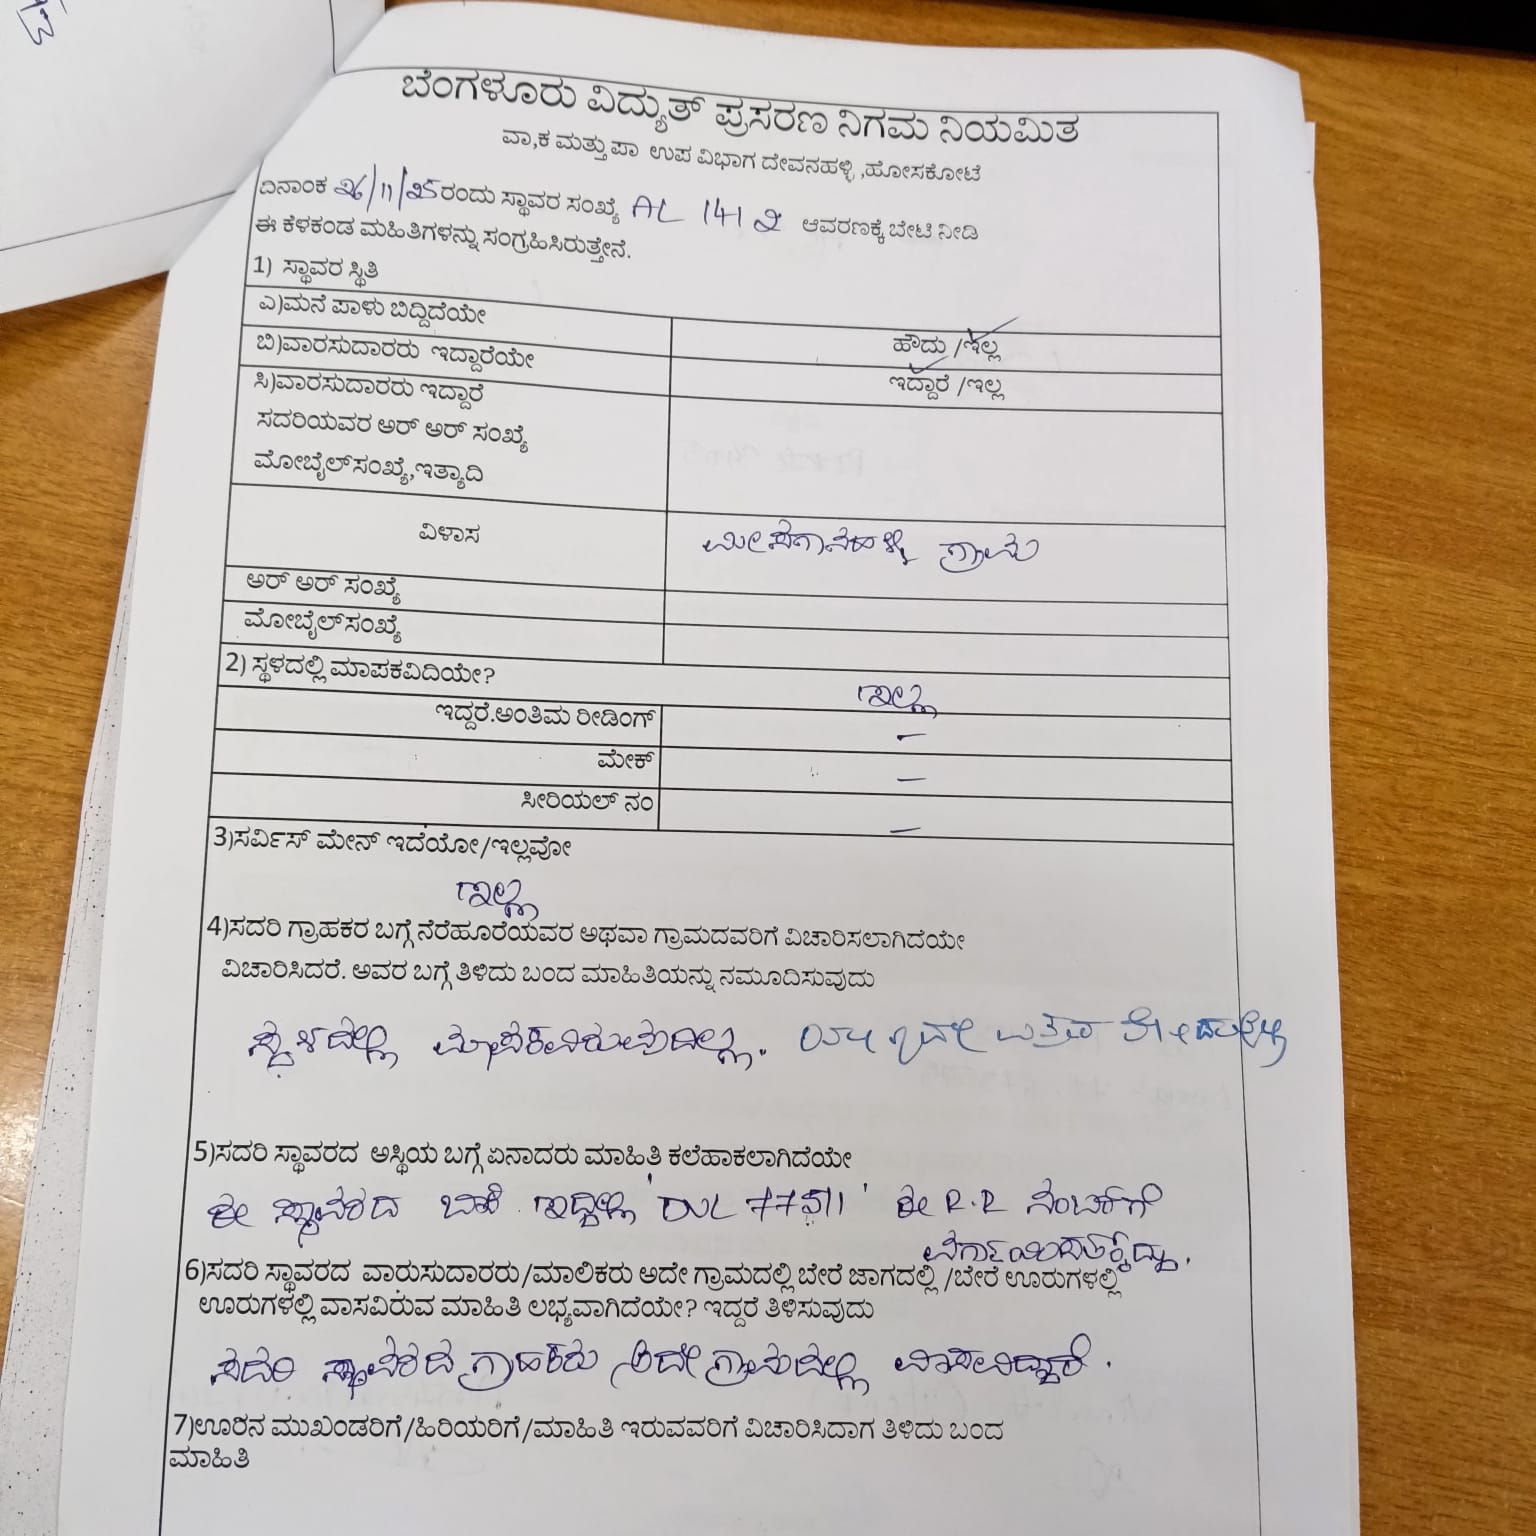 ಬೆಂಗಳೂರು ವಿದ್ಯುತ್ ಪ್ರಸರಣ ನಿಗಮ ನಿಯಮಿತ
ವಾ,ಕ ಮತ್ತು ಪಾ ಉಪ ವಿಭಾಗ ದೇವನಹಳ್ಳಿ ,ಹೋಸಕೋಟೆ
ದಿನಾಂಕ 26/11/25 ರಂದು ಸ್ಥಾವರ ಸಂಖ್ಯೆ AL 1412 ಆವರಣಕ್ಕೆ ಬೇಟಿ ನೀಡಿ
ಈ ಕೆಳಕಂಡ ಮಹಿತಿಗಳನ್ನು ಸಂಗ್ರಹಿಸಿರುತ್ತೇನೆ.
1) ಸ್ಥಾವರ ಸ್ಥಿತಿ
ಎ)ಮನೆ ಪಾಳು ಬಿದ್ದಿದೆಯೇ
ಹೌದು /ಇಲ್ಲ
ಬಿ)ವಾರಸುದಾರರು ಇದ್ದಾರೆಯೇ
ಇದ್ದಾರೆ /ಇಲ್ಲ
ಸಿ)ವಾರಸುದಾರರು ಇದ್ದಾರೆ
ಸದರಿಯವರ ಅರ್ ಅರ್ ಸಂಖ್ಯೆ
ಮೋಬೈಲ್‌ಸಂಖ್ಯೆ,ಇತ್ಯಾದಿ
ವಿಳಾಸ
ಮೀಸಗಾನಹಳ್ಳಿ ಗ್ರಾಮ
ಅರ್ ಅರ್ ಸಂಖ್ಯೆ
ಮೋಬೈಲ್‌ಸಂಖ್ಯೆ
2) ಸ್ಥಳದಲ್ಲಿ ಮಾಪಕವಿದಿಯೇ?
ಇಲ್ಲ
ಇದ್ದರೆ.ಅಂತಿಮ ರೀಡಿಂಗ್ –
ಮೇಕ್ –
ಸೀರಿಯಲ್ ನಂ –
3)ಸರ್ವಿಸ್ ಮೇನ್ ಇದೆಯೋ/ಇಲ್ಲವೋ
ಇಲ್ಲ
4)ಸದರಿ ಗ್ರಾಹಕರ ಬಗ್ಗೆ ನೆರೆಹೊರೆಯವರ ಅಥವಾ ಗ್ರಾಮದವರಿಗೆ ವಿಚಾರಿಸಲಾಗಿದೆಯೇ
ವಿಚಾರಿಸಿದರೆ. ಅವರ ಬಗ್ಗೆ ತಿಳಿದು ಬಂದ ಮಾಹಿತಿಯನ್ನು ನಮೂದಿಸುವುದು
ಸ್ಥಳದಲ್ಲಿ ಮಾಪಕವಿರುವುದಿಲ್ಲ.
5)ಸದರಿ ಸ್ಥಾವರದ ಅಸ್ಥಿಯ ಬಗ್ಗೆ ಏನಾದರು ಮಾಹಿತಿ ಕಲೆಹಾಕಲಾಗಿದೆಯೇ
ಈ ಸ್ಥಾವರದ ಬಾಕಿ ಇದ್ದಲ್ಲಿ 'DVL 77511' ಈ R.R ನಂಬರ್‌ಗೆ
ವರ್ಗಾಯಿಸತಕ್ಕದ್ದು.
6)ಸದರಿ ಸ್ಥಾವರದ ವಾರುಸುದಾರರು/ಮಾಲಿಕರು ಅದೇ ಗ್ರಾಮದಲ್ಲಿ ಬೇರೆ ಜಾಗದಲ್ಲಿ /ಬೇರೆ ಊರುಗಳಲ್ಲಿ
ಊರುಗಳಲ್ಲಿ ವಾಸವಿರುವ ಮಾಹಿತಿ ಲಭ್ಯವಾಗಿದೆಯೇ? ಇದ್ದರೆ ತಿಳಿಸುವುದು
ಸದರಿ ಸ್ಥಾವರದ ಗ್ರಾಹಕರು ಅದೇ ಗ್ರಾಮದಲ್ಲಿ ವಾಸವಿದ್ದಾರೆ.
7)ಊರಿನ ಮುಖಂಡರಿಗೆ/ಹಿರಿಯರಿಗೆ/ಮಾಹಿತಿ ಇರುವವರಿಗೆ ವಿಚಾರಿಸಿದಾಗ ತಿಳಿದು ಬಂದ
ಮಾಹಿತಿ